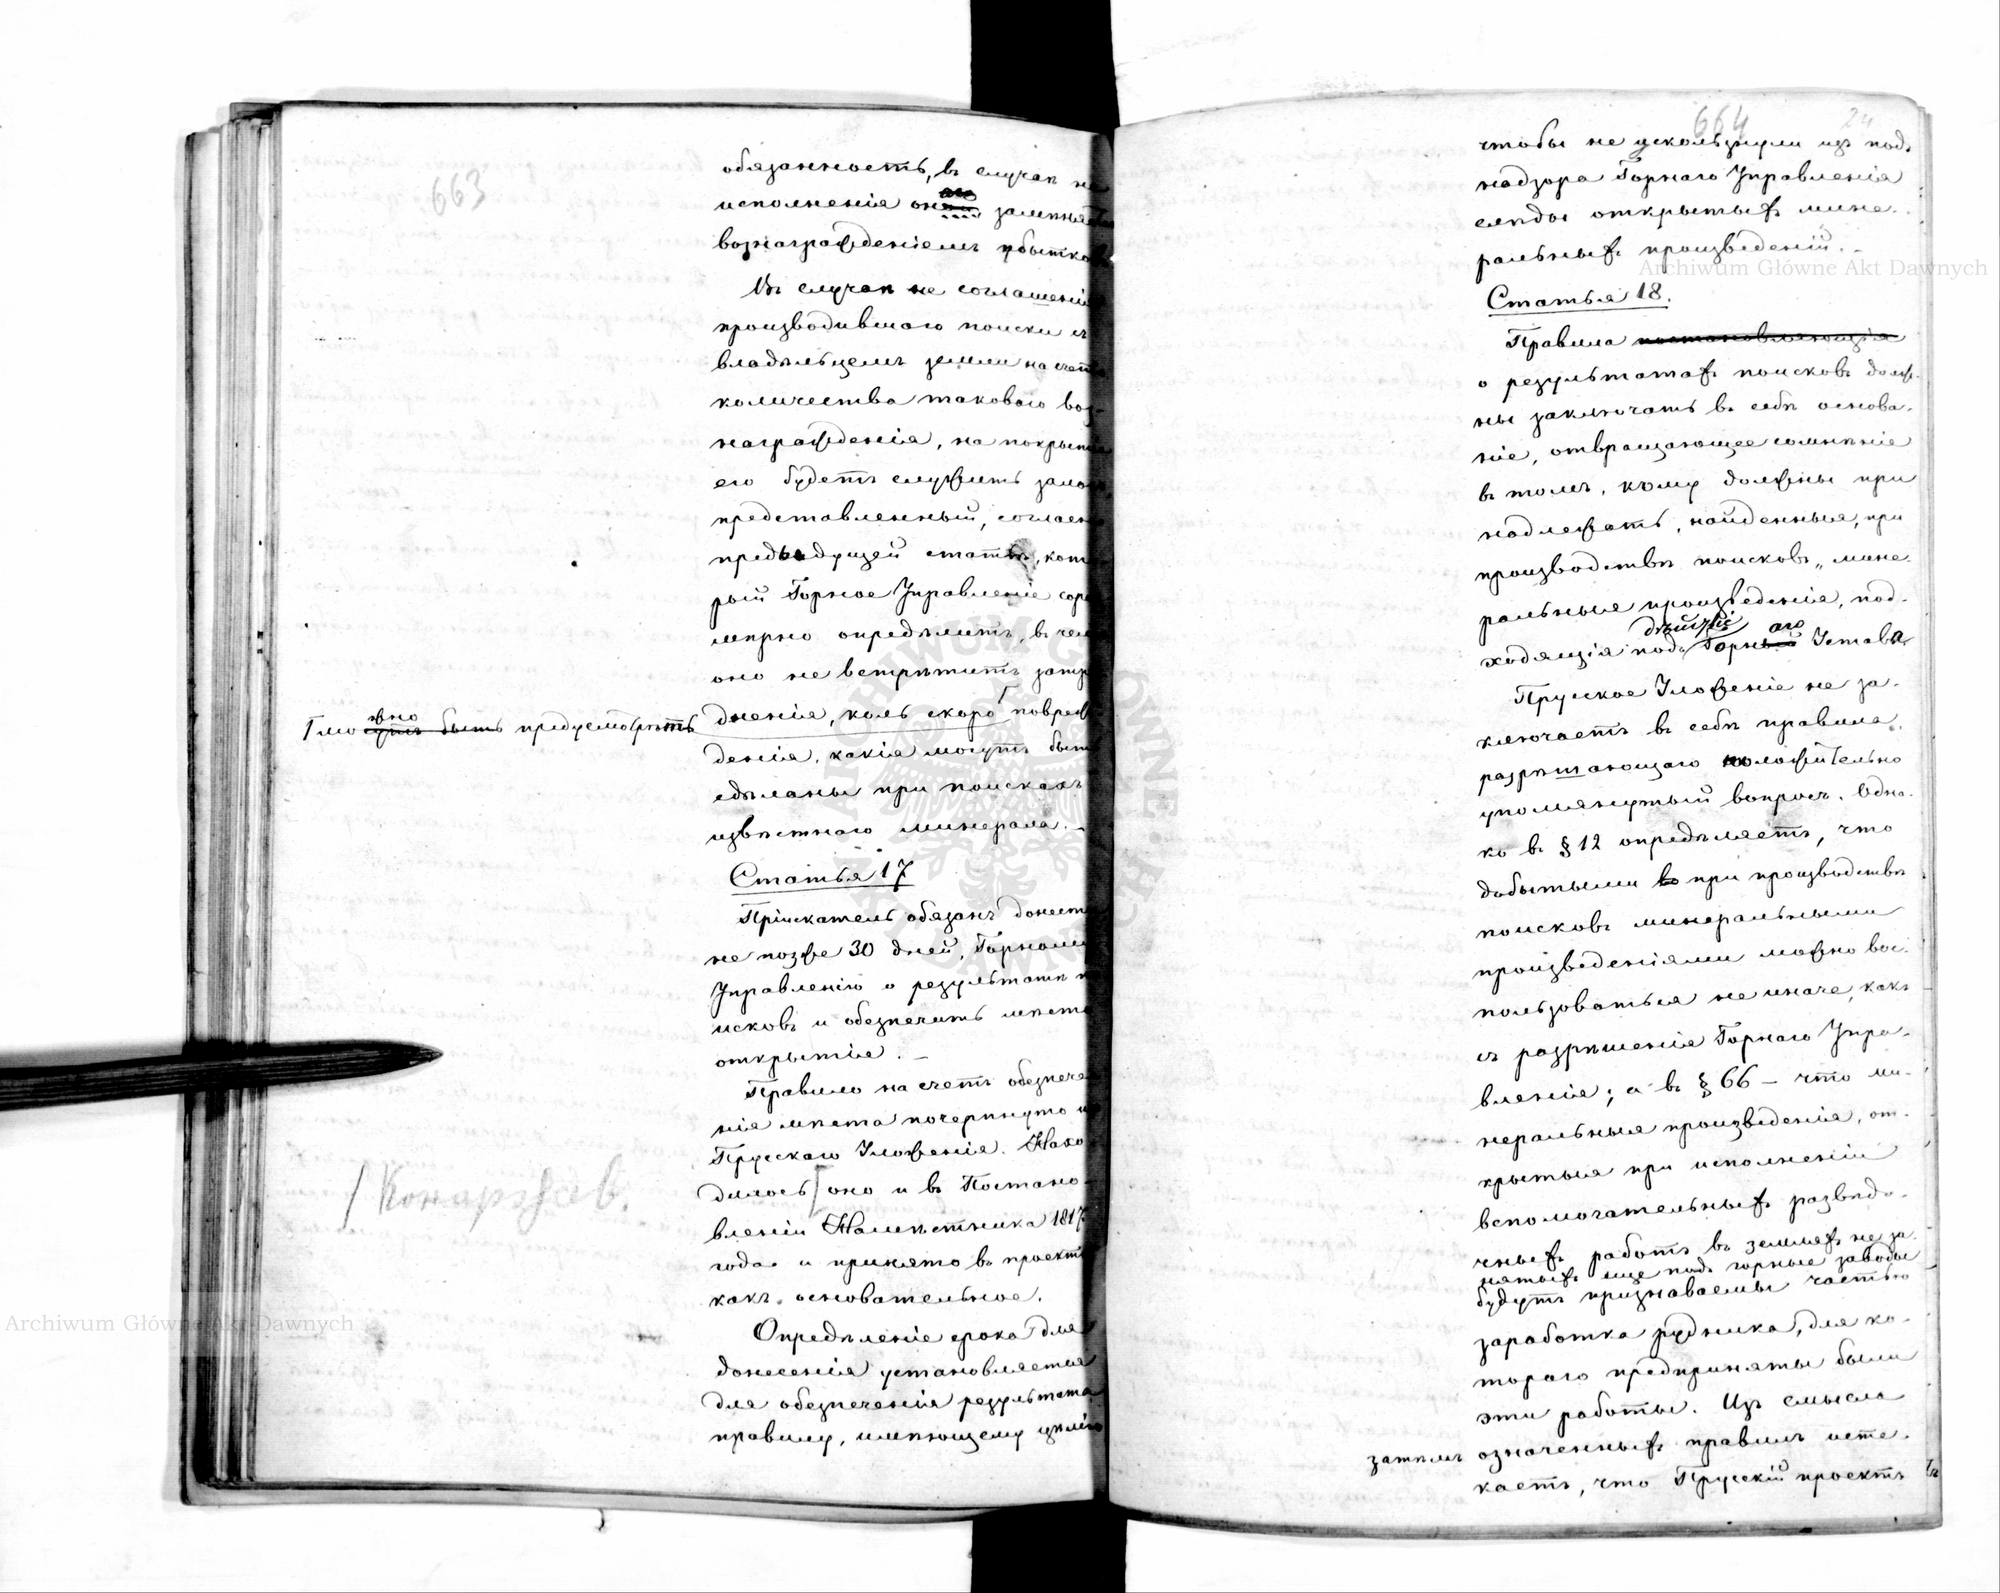 663
обязанность, въ случаѣ не
исполненія онаго замѣня
вознагражденіемъ убытко
Въ случаѣ не соглашенія
производившаго поиски съ
владѣльцемъ земли на счетъ
количества таковаго воз-
награжденія, на покрытіе
его будетъ служить залогъ,
представленный, согласно
предъидущей статьѣ, кото
рый Горное Управленіе сораз
мѣрно опредѣлитъ, въ чемъ
оно не встрѣтитъ затру
дненія, коль скоро Г повреж
Г можно предусмотрѣть
денія, какія могутъ быть
сдѣланы при поискахъ
извѣстнаго минерала. -
Статья 17
Пріискатель обязанъ донести
не позже 30 дней, Горному
Управленію о результатѣ по
исковъ и обезпечить мѣсто
открытія. -
Правило на счетъ обезпече
нія мѣста почерпнуто изъ
Прусскаго Уложенія. Нахо
дилось оно и въ Постано-
вленіи Намѣстника 1817
года и принято въ проектъ
какъ основательное.
Опредѣленіе срока для
донесенія установляется
для обезпеченія результата
правилу, имѣющему цѣлію
664
24
чтобы не ускользнули изъ подъ
надзора Горнаго Управленія
слѣды открытыхъ мине-
ральныхъ произведеній. -
Статья 18.
Правила постановляющія
о результатахъ поисковъ долж-
ны заключать въ себѣ основа-
ніе, отвращающее сомнѣніе
въ томъ, кому должны при
надлежать, найденныя, при
производствѣ поисковъ, мине-
ральныя произведенія, под-
ходящія подъ дѣйствіе Горнаго Устава
Прусское Уложеніе не за-
ключаетъ въ себѣ правила,
разрѣшающаго положительно
упомянутый вопросъ. Одна-
ко въ § 12 опредѣляетъ, что
добытыми при производствѣ
поисковъ минеральными
произведеніями можно вос-
пользоваться не иначе, какъ
съ разрѣшенія Горнаго Упра-
вленія; а въ § 66 - что ми-
неральныя произведенія, от-
крытыя при исполненіи
вспомогательныхъ развѣдо-
чныхъ работъ въ земляхъ не за-
нятыхъ еще подъ горные заводы
будутъ признаваемы частью
заработка рудника, для ко-
тораго предприняты были
эти работы. Изъ смысла
затѣмъ означенныхъ правилъ исте-
каетъ, что Прусскій проектъ
Archiwum Główne Akt Dawnych
Archiwum Główne Akt Dawnych